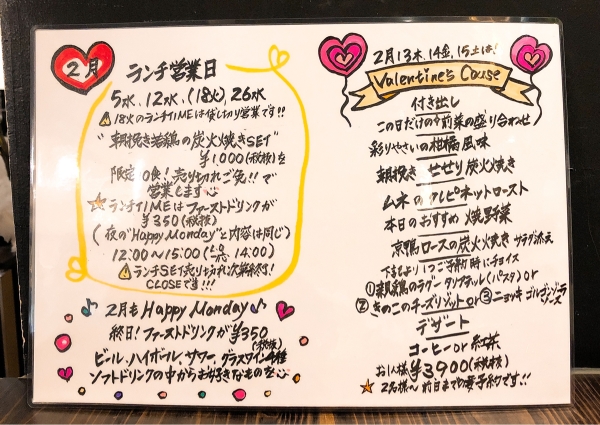 2月
ランチ営業日
5水、12水、(18火)、26水
18火のランチTIMEは貸し切り営業です!!
"朝挽き若鶏の炭火焼きSET"
¥1,000(税抜)を
限定10食!売り切れご免!!で
営業します
ランチTIMEはファーストドリンクが
¥350(税抜)
(夜の"Happy Monday"と内容は同じ)
12:00〜15:00(L.O. 14:00)
ランチSET売り切れ次第終了!
CLOSEです!!!
2月も Happy Monday♪
終日!ファーストドリンクが¥350
(税抜)
ビール、ハイボール、サワー、グラスワイン4種
ソフトドリンクの中からお好きなものを
2月13木、14金、15土は!
Valentine's Cause
付き出し
この日だけの前菜の盛り合わせ
彩りやさいの柑橘風味
朝挽き せせり炭火焼き
ムネのクレピネットロースト
本日のおすすめ 焼野菜
京鴨ロースの炭火焼き サラダ添え
下記より1つご予約時にチョイス
①若鶏のラグータリアテッレ(パスタ)or
②きのこのチーズリゾットor③ニョッキ ゴルゴンゾーラソース
デザート
コーヒーor紅茶
お1人様¥3900(税抜)
2名様〜 前日までの要予約です!!